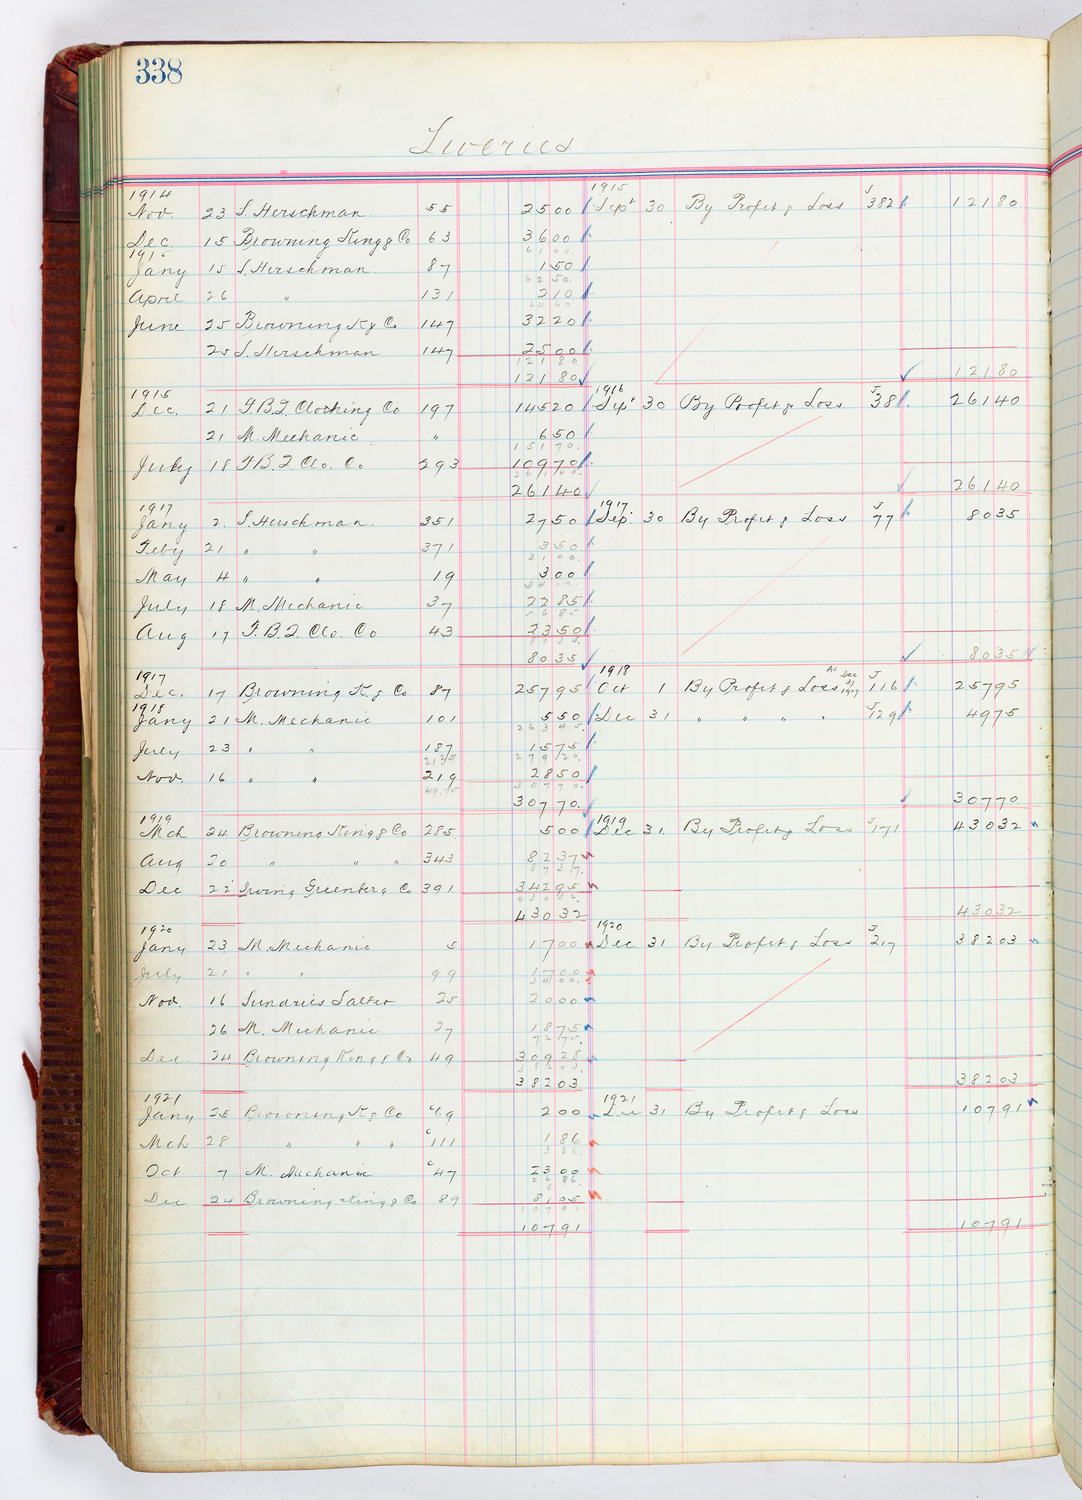 338
Liveries
1914 1915
Nov. 23 S. Herschman 55 2500 Sept 30 By Profit & Loss J 382 12180
Dec. 15 Browning King & Co 63 3600
6100
1915
Jany 15 S. Herschman 87 150
6250
April 26 " 131 210
6460
June 25 Browning K & Co 147 3220
25 S. Herschman 147 2500
12180
12180 12180
1915 1916
Dec. 21 F.B.Q. Clothing Co 197 14520 Sept 30 By Profit & Loss J 38 26140
21 M. Mechanic " 650
15170.
July 18 F.B.Q. Clo. Co 293 10970
26140
26140 26140
1917 1917
Jany 2. S. Herschman. 351 2750 Sep. 30 By Profit & Loss J 77 8035
Feby 21 " " 371 350
3100.
May 4 " " 19 300
3400.
July 18 M. Mechanic 37 2285
5685
Aug 17 F.B.Q. Clo. Co 43 2350
8035
8035 8035
1917 1918
Dec. 17 Browning K. & Co. 87 25795 Oct 1 By Profit & Loss As Dec 31 1917 J 116 25795
1918
Jany 21 M. Mechanic 101 550 Dec 31 " " " " J 129 4975
26345.
July 23 " " 187 1575
2125 27920.
Nov. 16 " " 219 2850
4975 30770.
30770. 30770.
1919 1919
Mch 24 Browning King & Co 285 500 Dec 31. By Profit & Loss J 171 43032
Aug 20 " " " 343 8237
8737.
Dec 22 Irving Greenberg Co 391 34295
43032.
43032 43032
1920 1920
Jany 23 M. Mechanic 5 1700 Dec. 31 By Profit & Loss J 217 38203
July 21 " " 99 1700
3400.
Nov. 16 Sundries Salter 25 2000
26 M. Mechanic 27 1875
7275.
Dec. 24 Browning King & Co 49 30928
38203.
38203 38203
1921 1921
Jany 25 Browning K & Co C 69 200 Dec 31 By Profit & Loss 10791
Mch 28 " " " C 111 186
386.
Oct 7 M. Mechanic C 47 2300
2686
Dec 24 Browning King & Co 89 8105
10791.
10791 10791